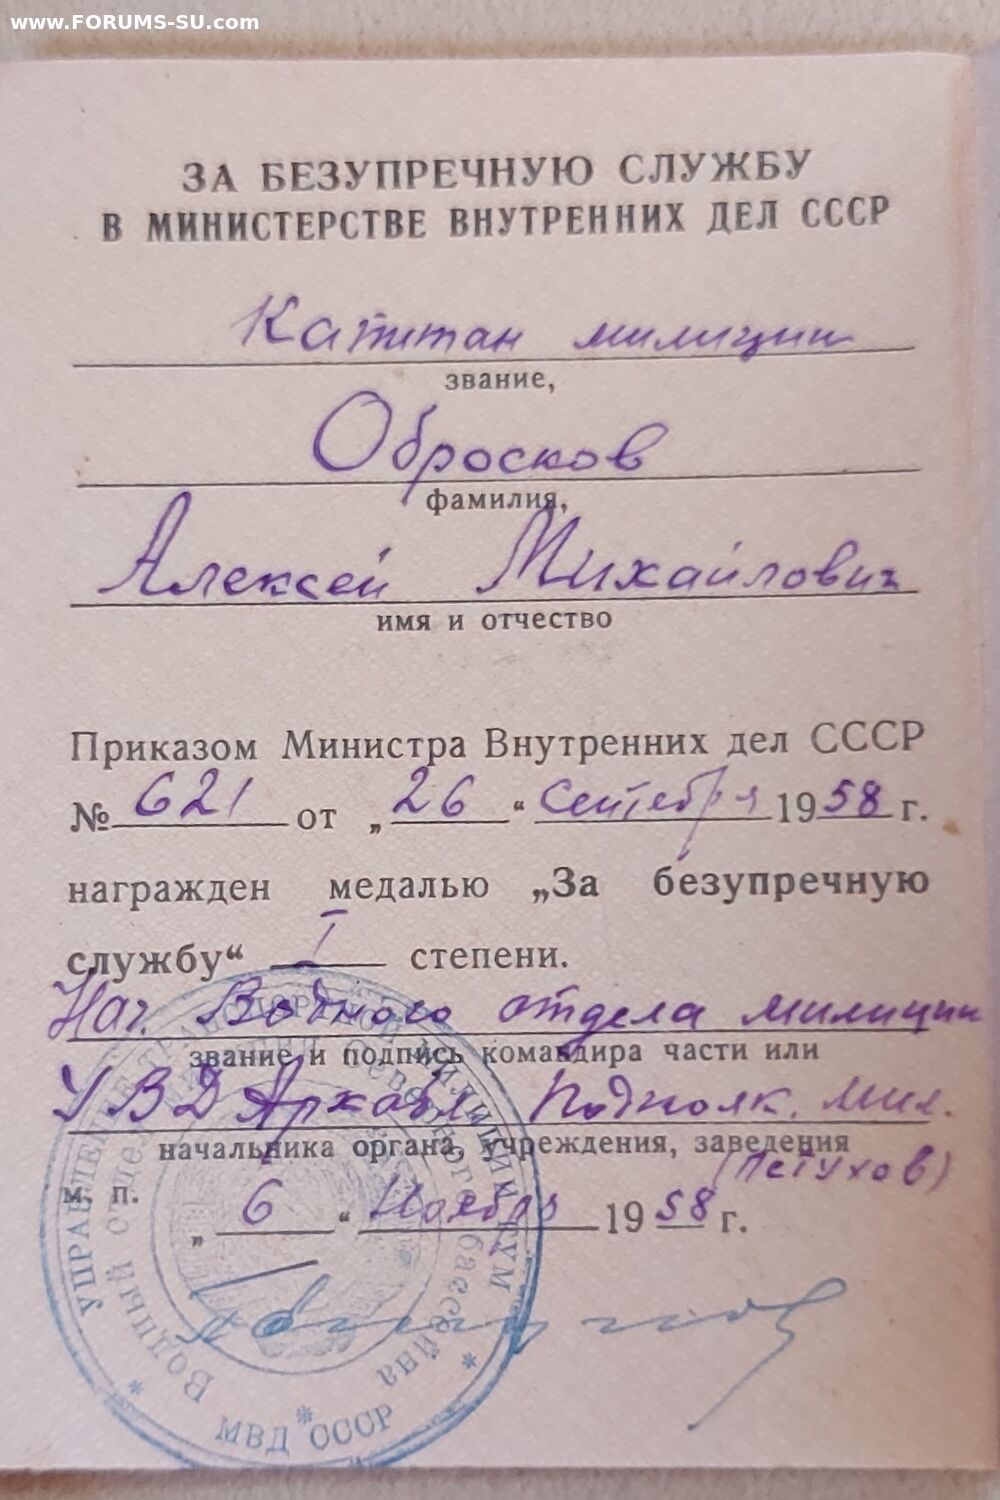 www.FORUMS-SU.com
ЗА БЕЗУПРЕЧНУЮ СЛУЖБУ
В МИНИСТЕРСТВЕ ВНУТРЕННИХ ДЕЛ СССР
Капитан милиции
звание,
Обросков
фамилия,
Алексей Михайлович
имя и отчество
Приказом Министра Внутренних дел СССР
№ 621 от „26“ Сентября 1958 г.
награжден медалью „За безупречную
службу“ I степени.
Нач. Водного отдела милиции
звание и подпись командира части или
УВД Архобл Подполк. мил.
начальника органа, учреждения, заведения
(Петухов)
м. п.
„6“ Ноября 1958 г.
УПРАВЛЕНИЕ МИЛИЦИИ
Водный отдел бассейна
МВД СССР